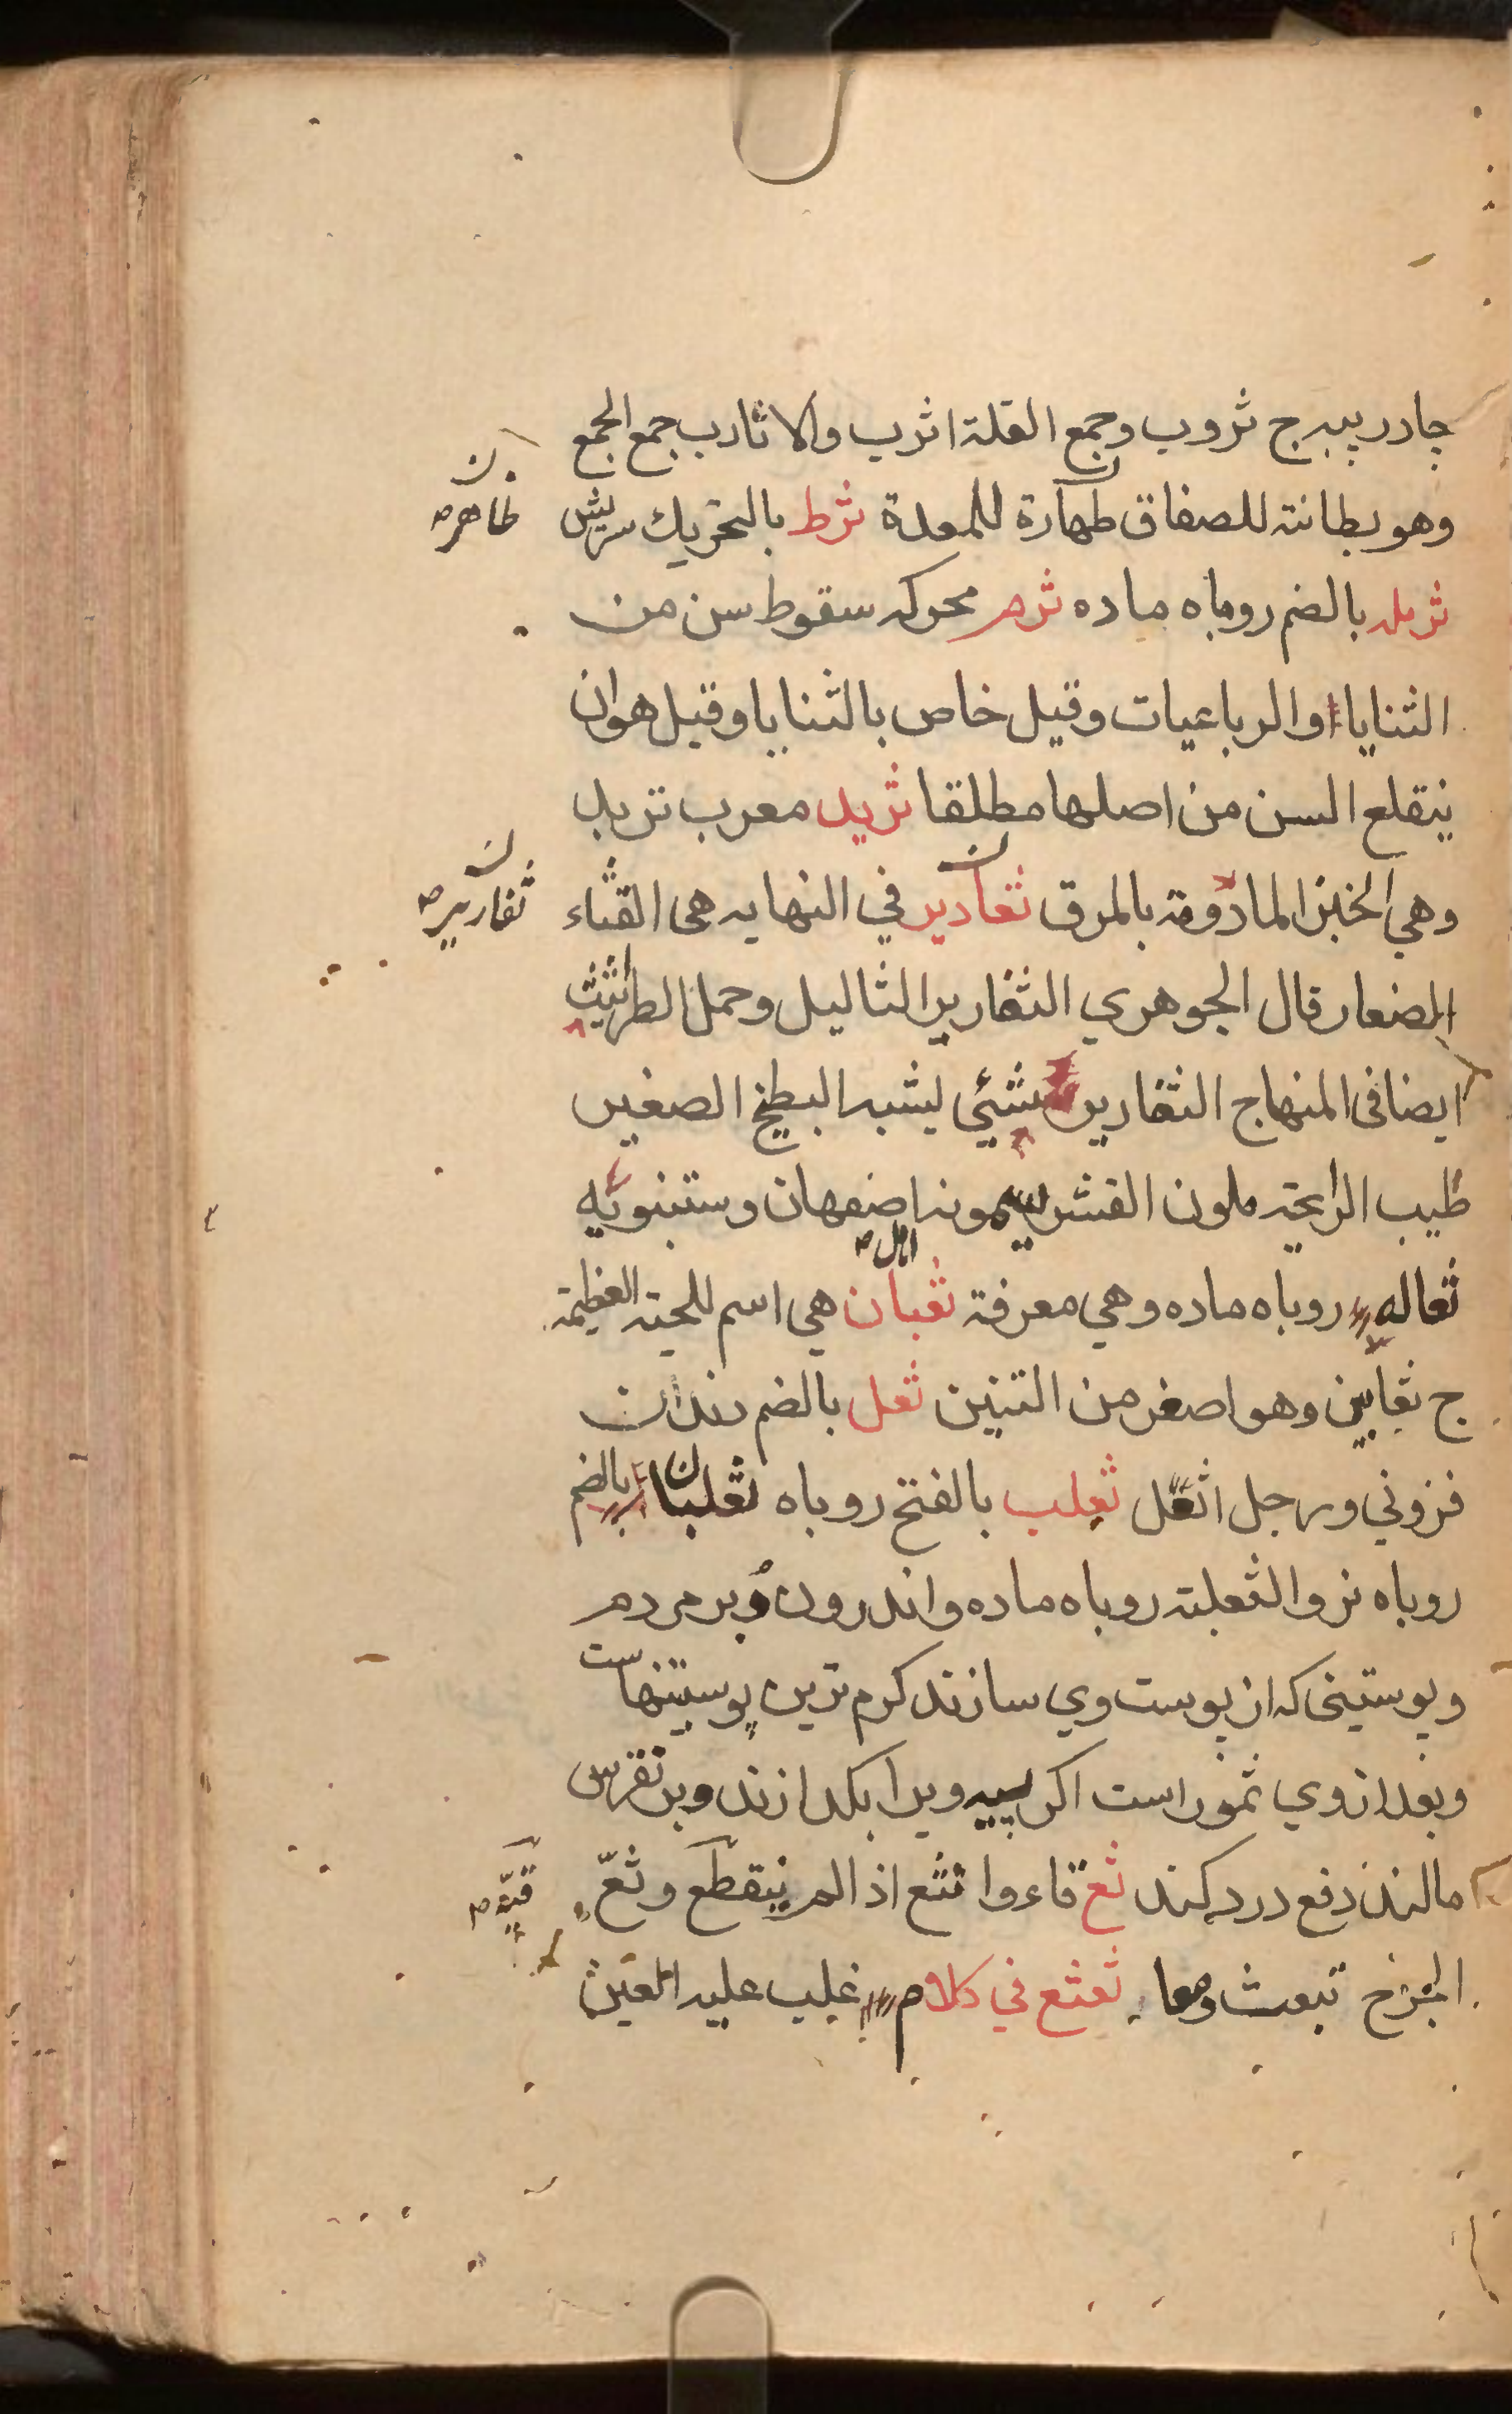 چادر پیه ج ثروب وجمع القلة اثرب والاثارب جمع الجمع
وهو بطانته للصفاق طهارة للمعدة ثرط بالتحريك سریش
ظاهره
ثرمله بالضم روباه ماده ثرم محركه سقوط سن من
الثنايا او الرباعيات وقيل خاص بالثنايا وقيل هو ان
ينقلع السن من اصلها مطلقا ثريد معرب تريد
وهي الخبز المادومة بالمرق ثعادير في النهايه هى القثاء
ثفارير
الصغار قال الجوهري الثغارير الثاليل وحمل الطراثيث
ايضا فى المنهاج الثغارير شئي يشبه البطيخ الصغير
طيب الرايحة ملون القشر يسمونه اصفهان وستنبويه
اهل
ثعاله روباه ماده وهي معرفة ثعبان هي اسم للحية العظيمة
ج ثعابين وهو اصغر من التنين ثعل بالضم دندان
فزوني ورجل اثعل ثعلب بالفتح روباه ثعلبان بالضم
روباه نر والثعلبة روباه ماده واندرون دبر مردم
وپوستینی که از پوست وی سازند کرم ترین پوستینهاست
وبعد از وي ثمور است اکر پیه ویرا بکدازند وبر نقرس
مالند دفع درد کند ثع قاء وا نثع اذ الم ينقطع وثعّ
قيؤه
الجرح تبعث وهما ثعثع في كلام غلب عليه العين